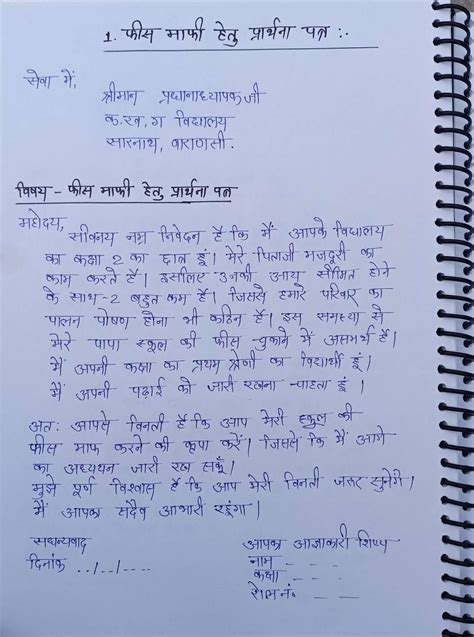 1. फीस माफी हेतु प्रार्थना पत्र :-
सेवा में,
श्रीमान प्रधानाध्यापक जी
क.ख.ग विद्यालय
सारनाथ, वाराणसी.
विषय - फीस माफी हेतु प्रार्थना पत्र
महोदय,
सविनय नम्र निवेदन है कि मैं आपके विद्यालय
का कक्षा 2 का छात्र हूं। मेरे पिताजी मजदूरी का
काम करते हैं। इसलिए उनकी आय सीमित होने
के साथ-2 बहुत कम है। जिससे हमारे परिवार का
पालन पोषण होना भी कठिन है। इस समस्या से
मेरे पापा स्कूल की फीस चुकाने में असमर्थ हैं।
मैं अपनी कक्षा का प्रथम श्रेणी का विद्यार्थी हूं।
मैं अपनी पढ़ाई को जारी रखना चाहता हूं।
अतः आपसे विनती है कि आप मेरी स्कूल की
फीस माफ करने की कृपा करें। जिससे कि मैं आगे
का अध्ययन जारी रख सकूँ।
मुझे पूर्ण विश्वास है कि आप मेरी विनती जरूर सुनेंगे।
मैं आपका सदैव आभारी रहूंगा।
सधन्यवाद
आपका आज्ञाकारी शिष्य
दिनांक ../../...
नाम - - - -
कक्षा - - - -
रोल नं. - - -